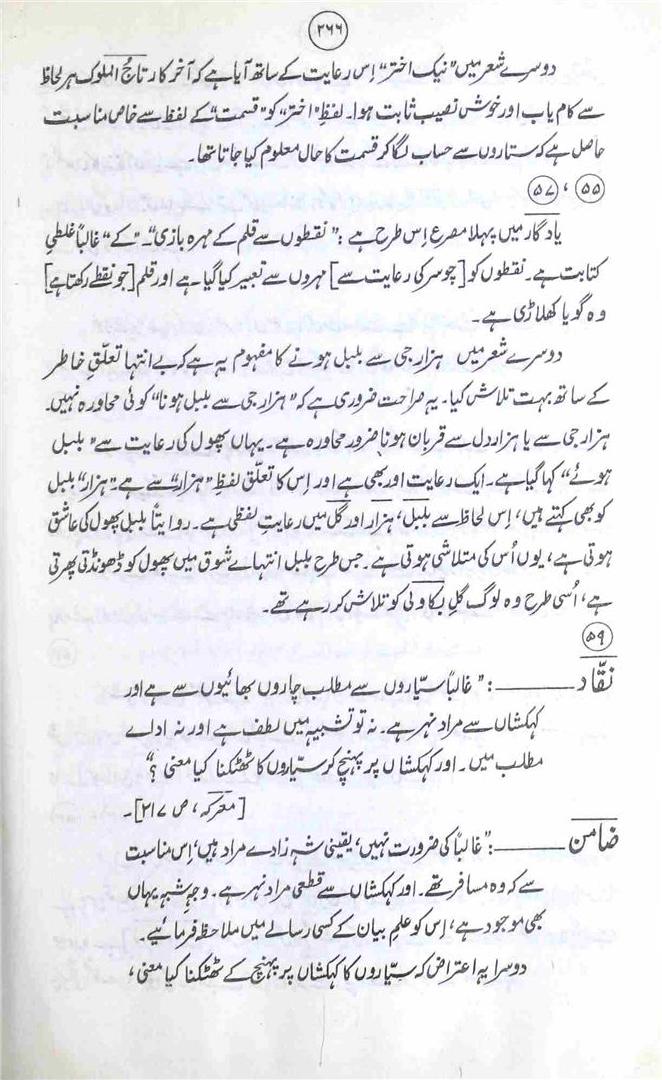 ۲۶۶
دوسرے شعر میں "نیک اختر" اِس رعایت کے ساتھ آیا ہے کہ آخرکار تاجُ الملوک ہر لحاظ
سے کام یاب اور خوش نصیب ثابت ہوا۔ لفظِ "اختر" کو "قسمت" کے لفظ سے خاص مناسبت
حاصل ہے کہ ستاروں سے حساب لگا کر قسمت کا حال معلوم کیا جاتا تھا۔
۵۵ ، ۵۷
یادگار میں پہلا مصرع اِس طرح ہے : "نقطوں سے قلم کے مہرہ بازی"۔ "کے" غالباً غلطیِ
کتابت ہے۔ نقطوں کو [چوسر کی رعایت سے] مہروں سے تعبیر کیا گیا ہے اور قلم [جو نقطے رکھتا ہے]
وہ گویا کھلاڑی ہے۔
دوسرے شعر میں ہزار جی سے بلبل ہونے کا مفہوم یہ ہے کہ بے انتہا تعلّقِ خاطر
کے ساتھ بہت تلاش کیا۔ یہ صراحت ضروری ہے کہ "ہزار جی سے بلبل ہونا" کوئی محاورہ نہیں۔
ہزار جی سے یا ہزار دل سے قربان ہونا ضرور محاورہ ہے۔ یہاں پھول کی رعایت سے "بلبل
ہوئے" کہا گیا ہے۔ ایک رعایت اور بھی ہے اور اِس کا تعلّق لفظِ "ہزار" سے ہے۔ "ہزار" بلبل
کو بھی کہتے ہیں، اِس لحاظ سے بلبل، ہزار اور گل میں رعایتِ لفظی ہے۔ روایتاً بلبل پھول کی عاشق
ہوتی ہے، یوں اُس کی متلاشی ہوتی ہے۔ جس طرح بلبل انتہاے شوق میں پھول کو ڈھونڈتی پھرتی
ہے، اُسی طرح وہ لوگ گلِ بکاولی کو تلاش کر رہے تھے۔
۵۹
نقّاد ـــــــــ : "غالباً سیّاروں سے مطلب چاروں بھائیوں سے ہے اور
کہکشاں سے مراد نہر ہے۔ نہ تو تشبیہ میں لطف ہے اور نہ اداے
مطلب میں۔ اور کہکشاں پر پہنچ کر سیّاروں کا ٹھٹکنا کیا معنی ؟"
[معرکہ ، ص ۲۱۷]۔
ضامن ـــــــــ : "غالباً کی ضرورت نہیں، یقینی شہ زادے مراد ہیں، اِس مناسبت
سے کہ وہ مسافر تھے۔ اور کہکشاں سے قطعی مراد نہر ہے۔ وجہِ شبہ یہاں
بھی موجود ہے، اِس کو علمِ بیان کے کسی رسالے میں ملاحظہ فرمائیے۔
دوسرا یہ اعتراض کہ سیّاروں کا کہکشاں پر پہنچ کے ٹھٹکنا کیا معنی،